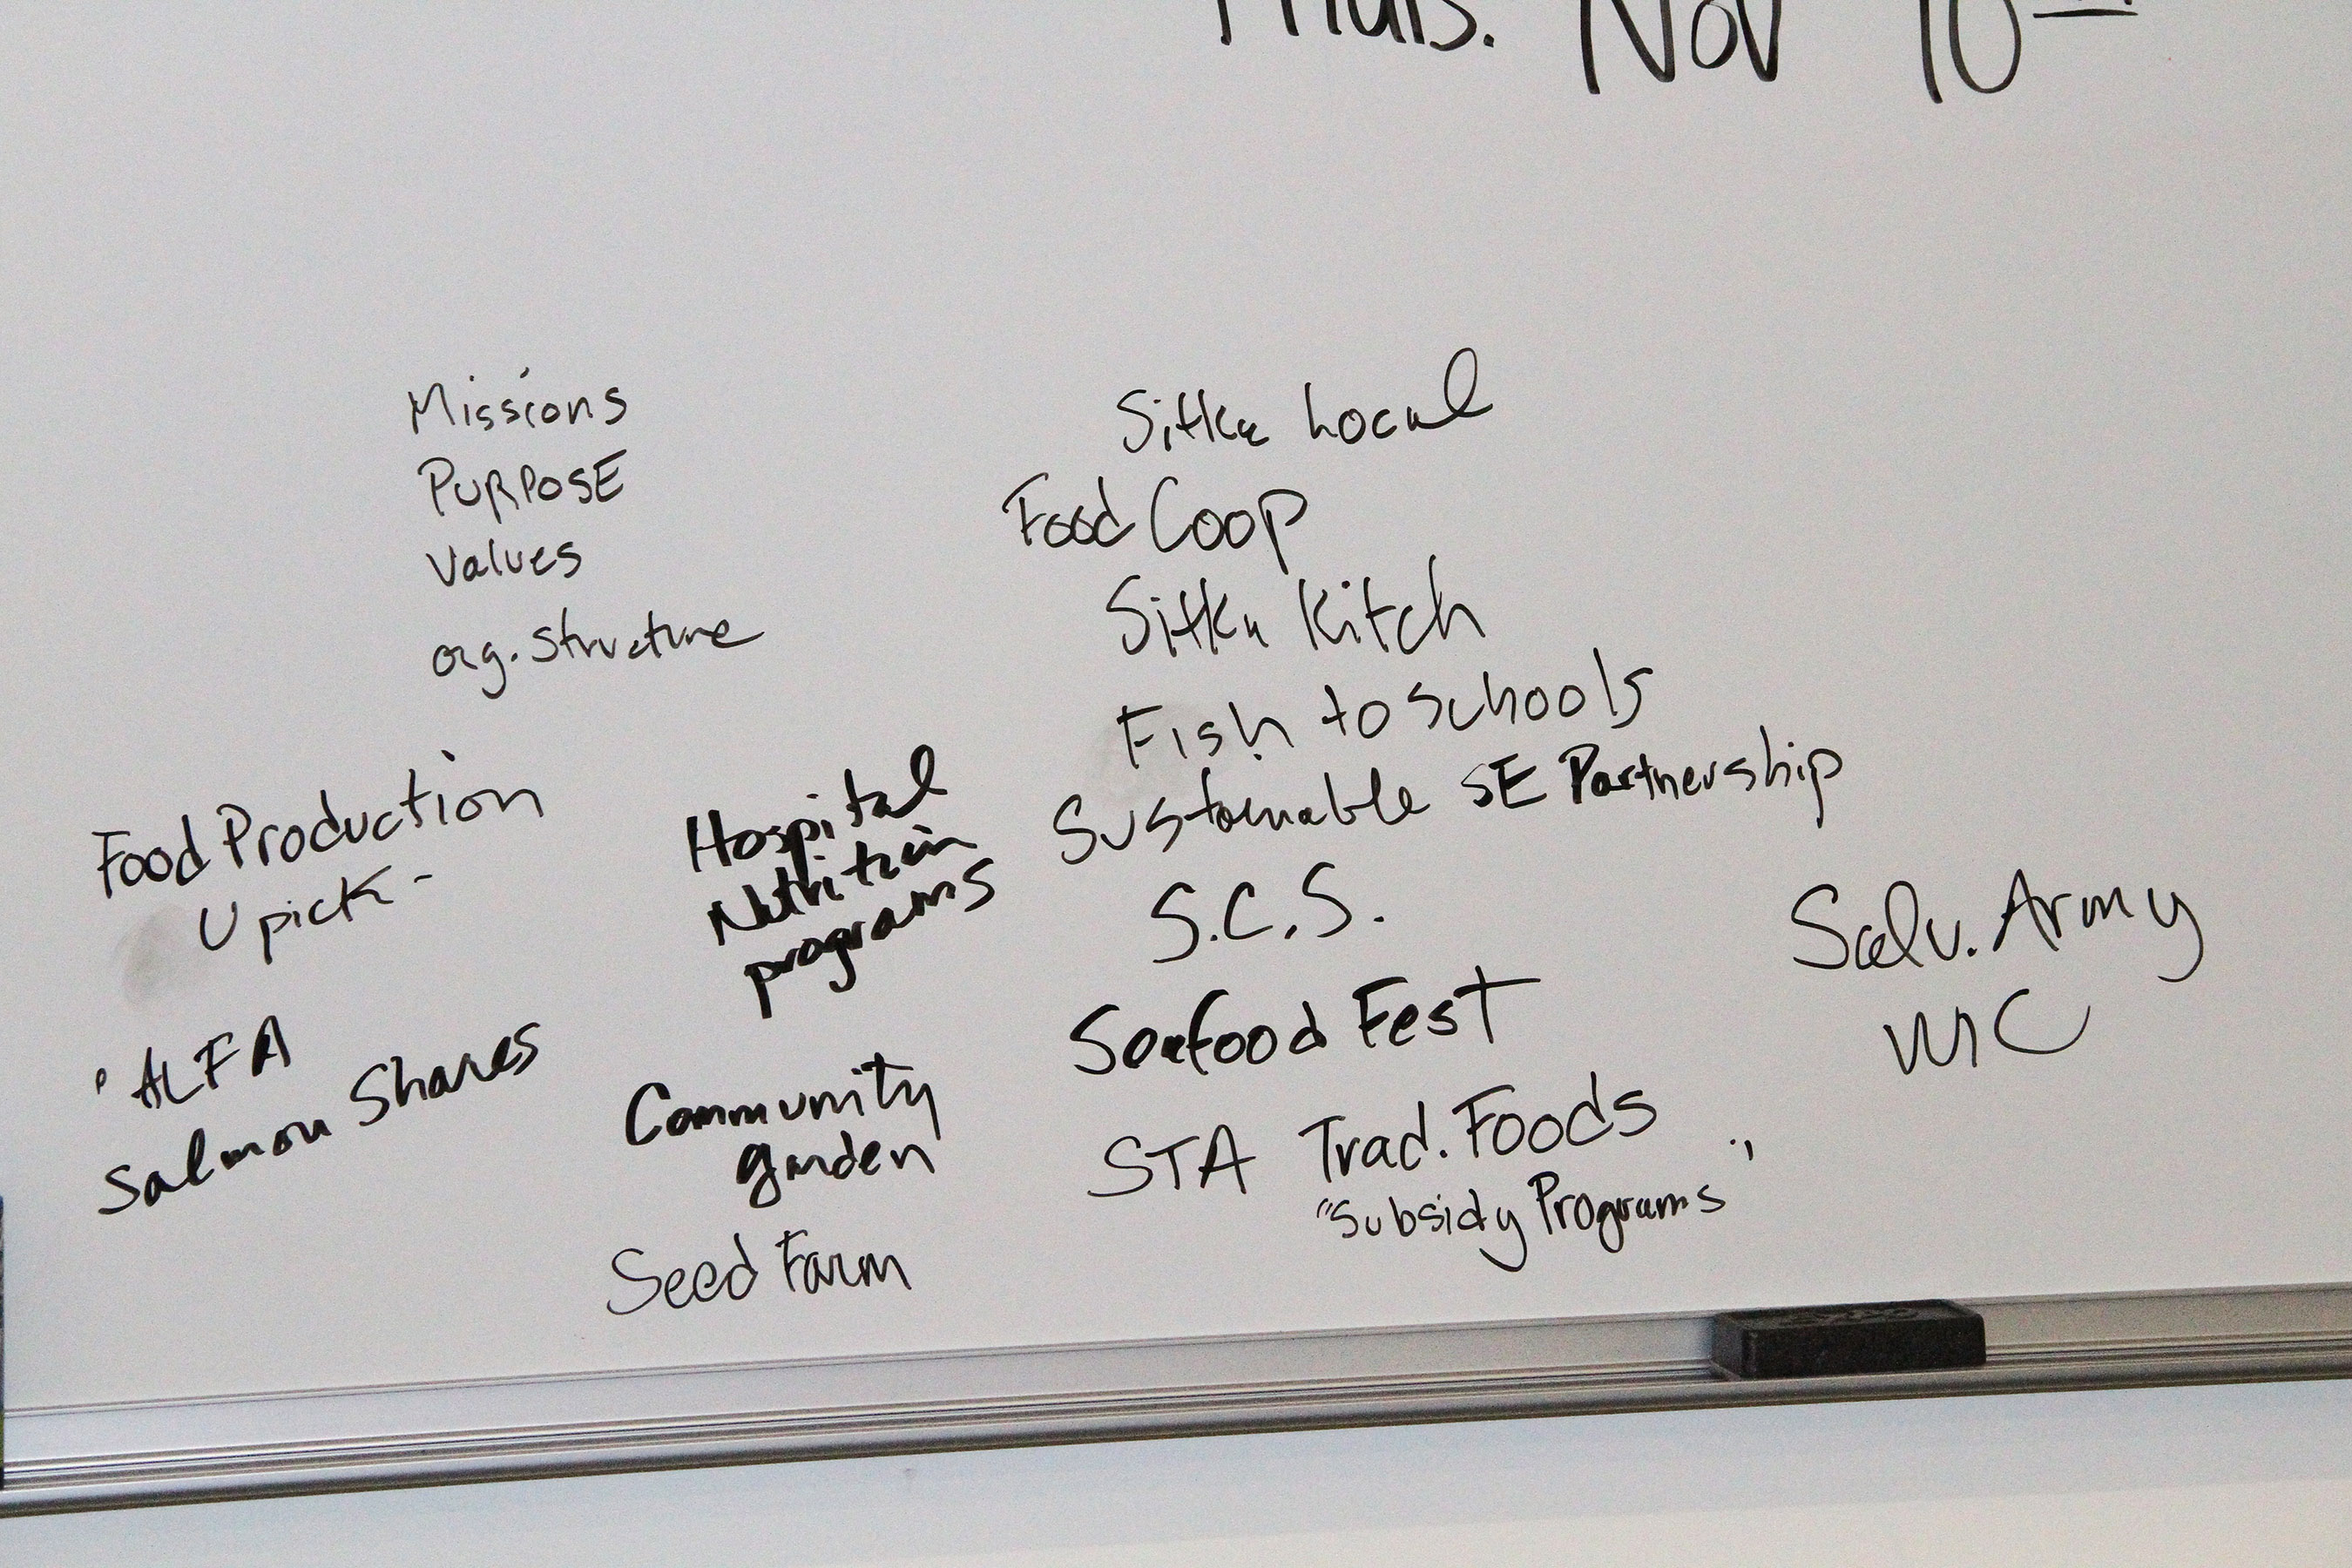 Thurs. Nov 10th
Missions
PURPOSE
Values
org. structure
Sitka Local
Food Coop
Sitka Kitch
Fish to Schools
Sustainable SE Partnership
S.C.S.
Seafood Fest
STA Trad. Foods
"Subsidy Programs"
Salv. Army
WIC
Food Production
U pick -
ALFA
Salmon Shares
Hospital
Nutrition
programs
Community
garden
Seed Farm